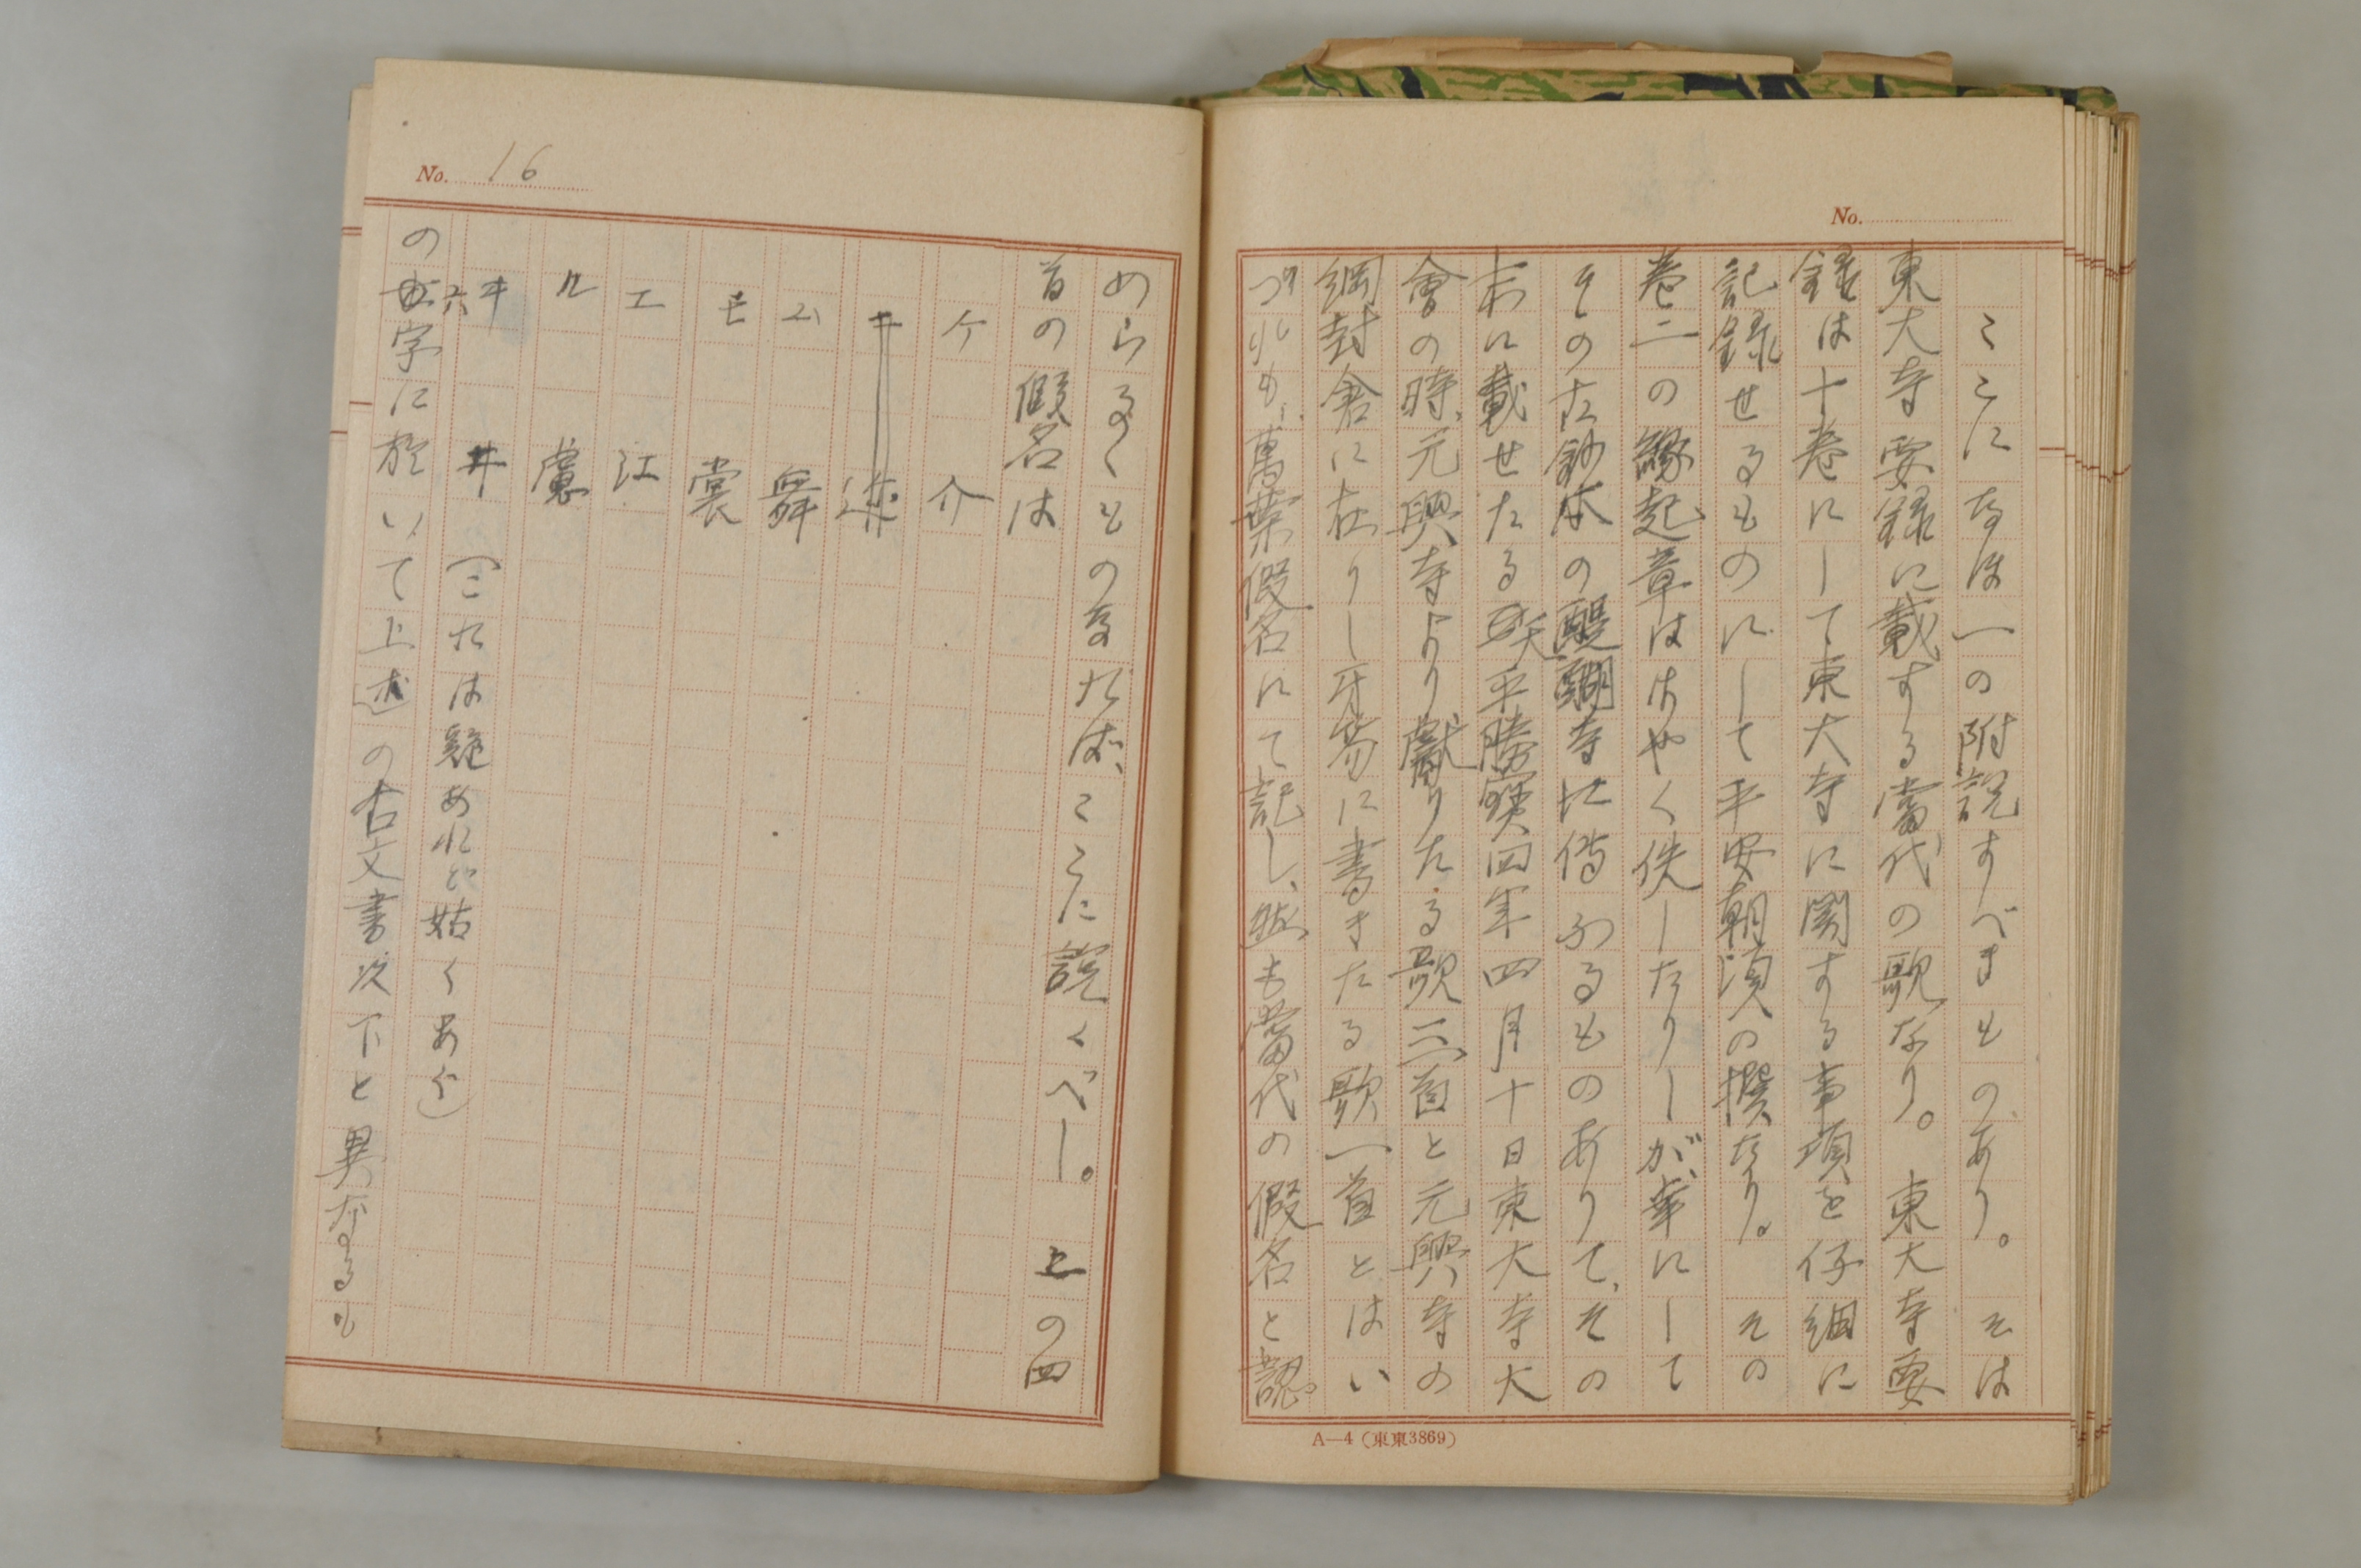 No.
ここになほ一の附説すべきものあり。そは
東大寺要録に載する當代の歌なり。東大寺要
録は十巻にして東大寺に関する事項を仔細に
記録せるものにして平安朝頃の撰なり。その
巻二の縁起章ははやく佚したりしが、幸にして
その古鈔本の醍醐寺に傳ふるものありて、その
本に載せたる天平勝寳四年四月十日東大寺大
會の時、元興寺より獻りたる歌三首と元興寺の
綱封倉に在りし牙笏に書きたる歌一首とはい
づれも、萬葉假名にて記し、然も當代の假名と認
A—4(東東3869)
No. 16
めらるゝものなれば、ここに説くべし。上の四
首の假名は
ケ 介
ヰ
ム 舞
モ 裳
エ 江
ル 慮
ヰ 井 (これは疑あれど姑くあぐ)
の六字に於いて上述の古文書次下と異なるも